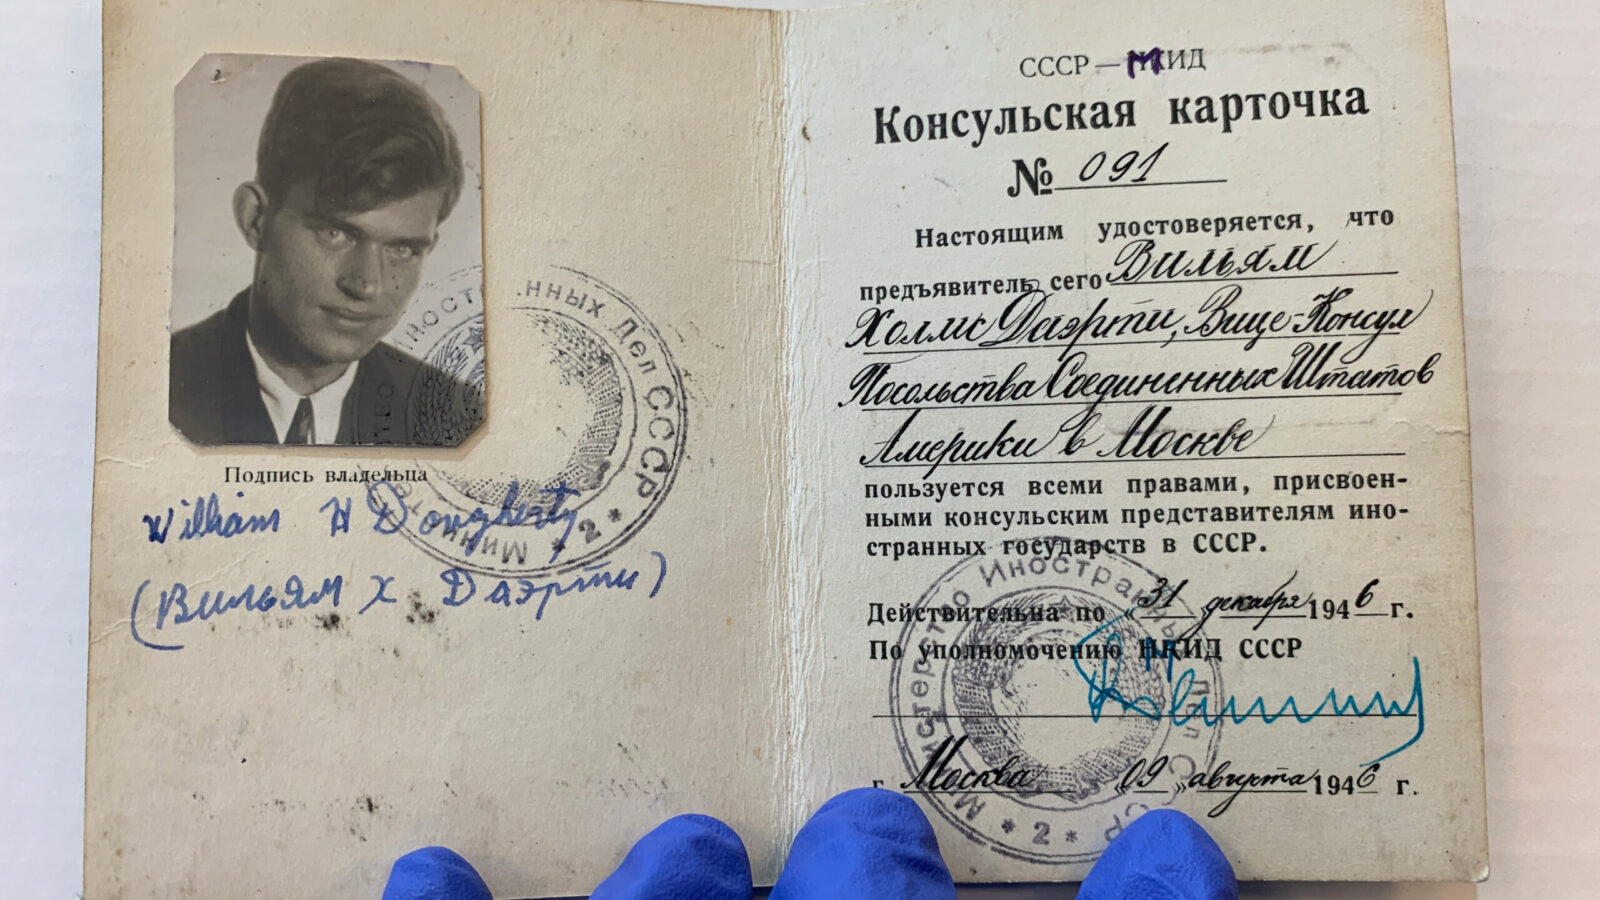 Подпись владельца
William H Dougherty
(Вильям Х Даэрти)
Министерство Иностранных Дел СССР
* 2 *
СССР — МИД
Консульская карточка
№ 091
Настоящим удостоверяется, что
предъявитель сего Вильям
Холмс Даэрти, Вице-Консул
Посольства Соединенных Штатов
Америки в Москве
пользуется всеми правами, присвоен-
ными консульским представителям ино-
странных государств в СССР.
Действительна по „31 декабря 1946 г.
По уполномочению МИД СССР
г. Москва „09„ августа 1946 г.
Министерство Иностранных Дел СССР
* 2 *